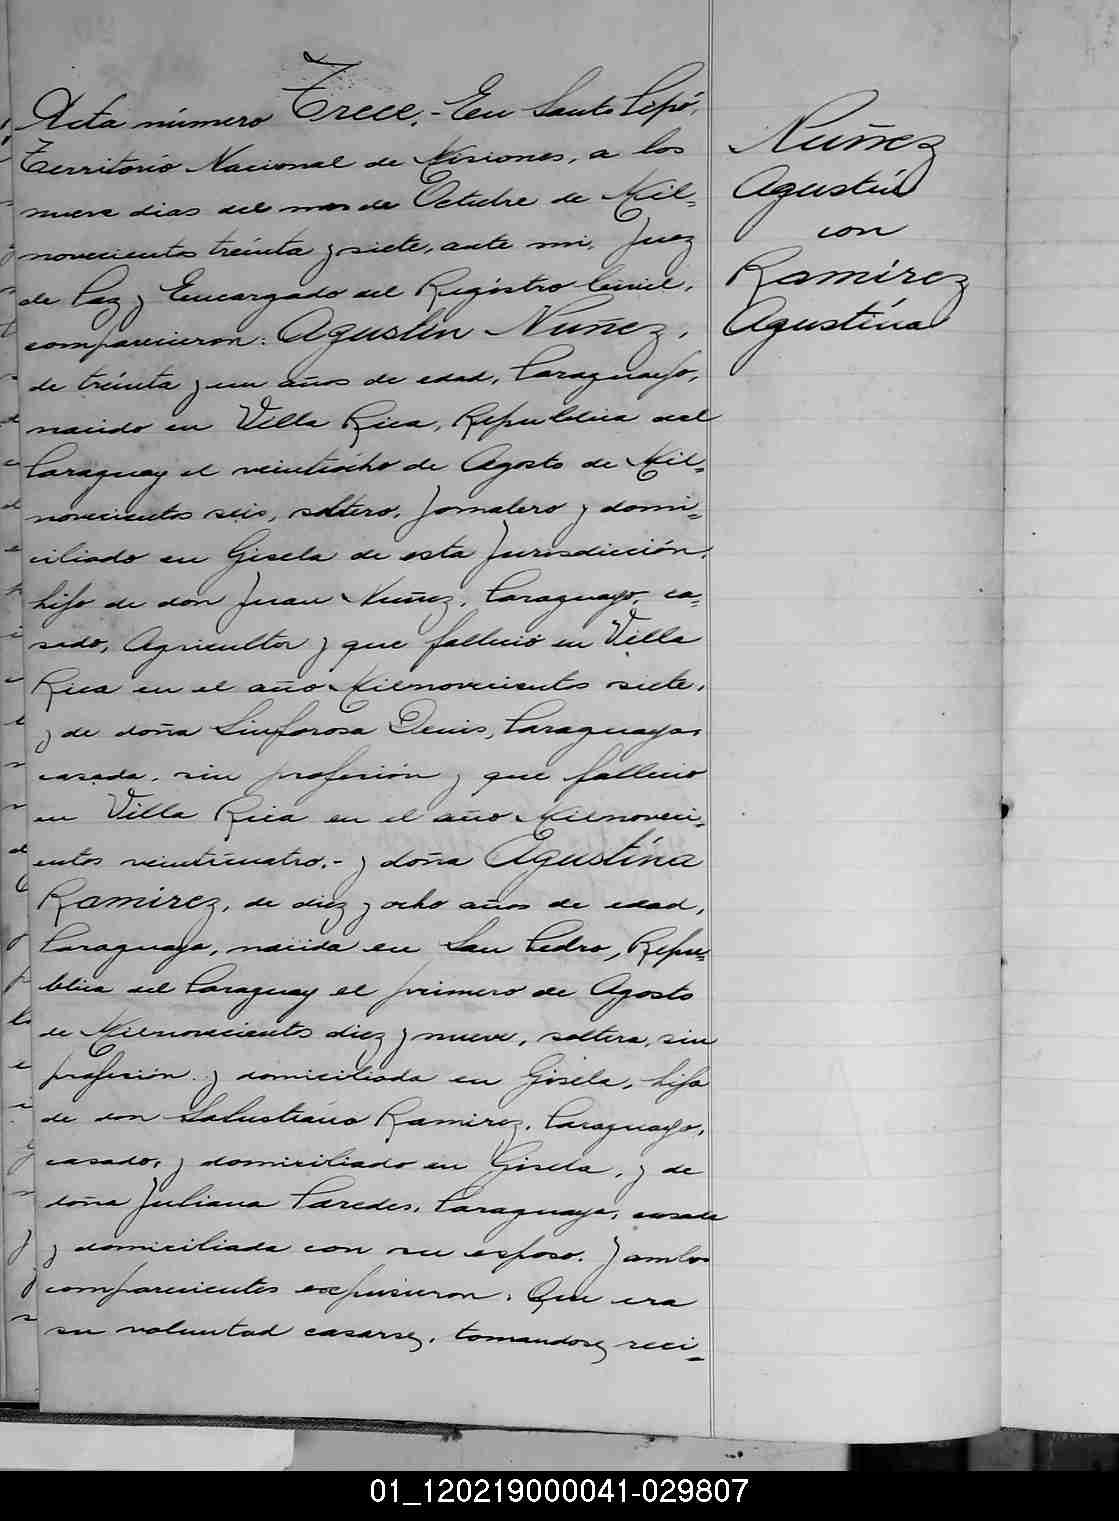 Acta número Trece.- En Santo Pipó,
Territorio Nacional de Misiones, a los
nueve dias del mes de Octubre de Mil-
novecientos treinta y siete, ante mi, Juez
de Paz y Encargado del Registro Civil,
comparecieron: Agustín Nuñez,
de treinta y un años de edad, Paraguayo,
nacido en Villa Rica, Republica del
Paraguay el veintiocho de Agosto de Mil-
novecientos seis, soltero, Jornalero y domi-
ciliado en Gisela de esta Jurisdicción,
hijo de don Juan Nuñez, Paraguayo, ca-
sado, Agricultor y que falleció en Villa
Rica en el año Milnovecientos siete,
y de doña Sinforosa Denis, Paraguaya,
casada, sin profesión y que fallecio
en Villa Rica en el año Milnoveci-
entos veinticuatro.- y doña Agustína
Ramírez, de diez y ocho años de edad,
Paraguaya, nacida en San Pedro, Repu-
blica del Paraguay el primero de Agosto
de Milnovecientos diez y nueve, soltera, sin
profesión y domiciliada en Gisela, hija
de don Salustiano Ramirez, Paraguayo,
casado, y domiciliado en Gisela, y de
doña Juliana Paredes, Paraguaya, casada
y domiciliada con su esposo. Y ambos
comparecientes expusieron: Que era
su voluntad casarse, tomandose reci-
Nuñez
Agustín
con
Ramírez
Agustína
01_120219000041-029807